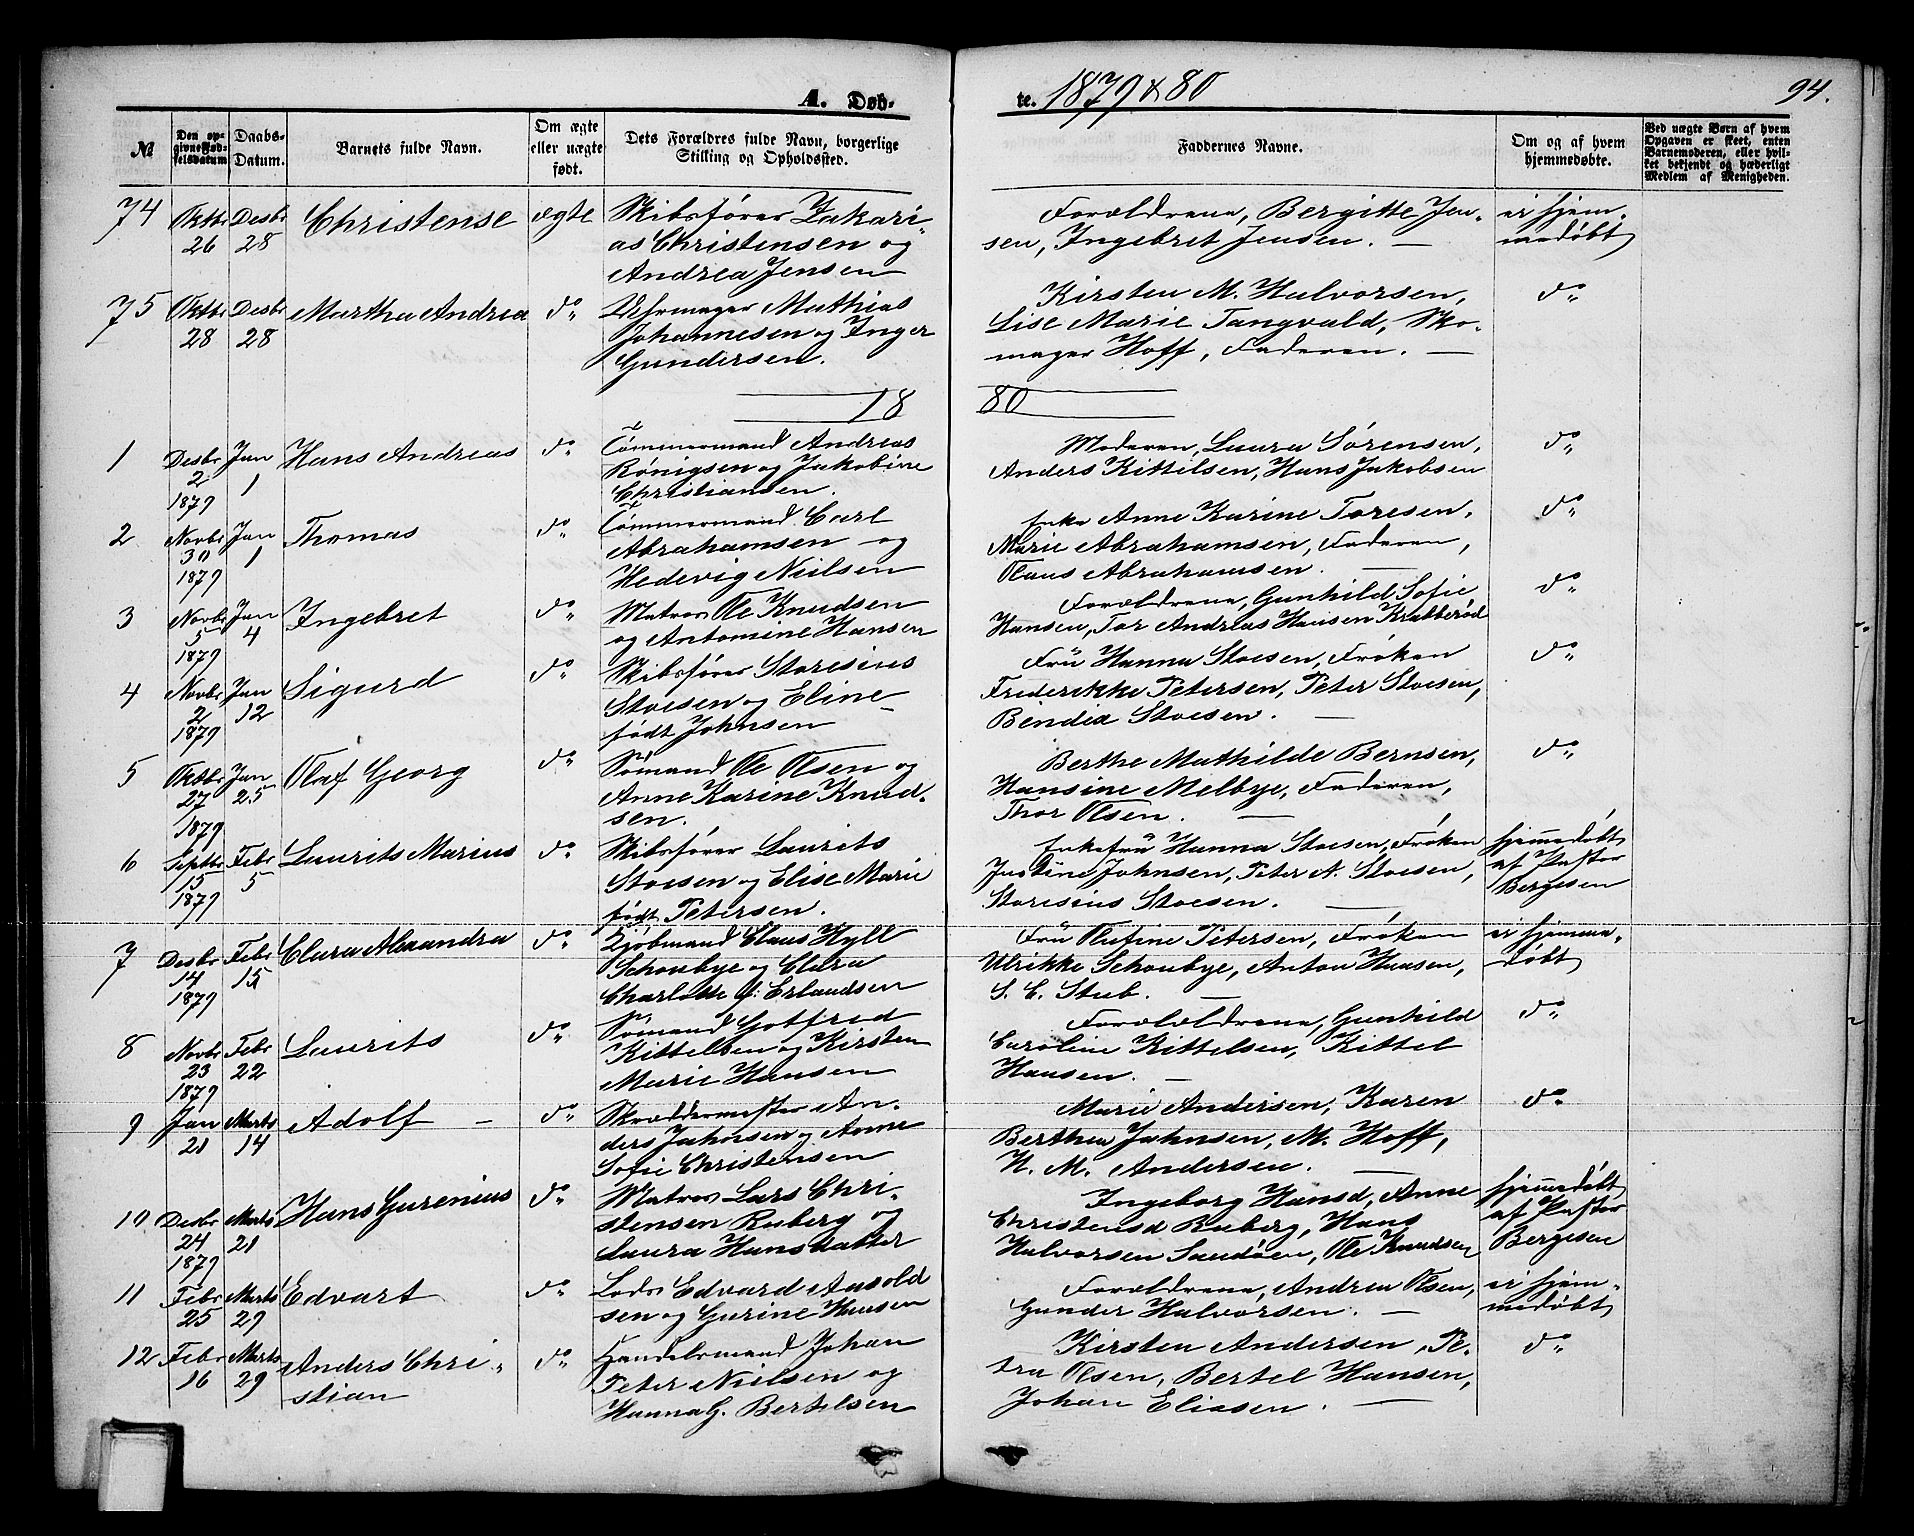 A. Døb-
te. 1879 & 80
94.
№
Den op-
givne Fød-
selsdatum
Daabs-
Datum.
Barnets fulde Navn.
Om ægte
eller uægte
født.
Dets Forældres fulde Navn, borgerlige
Stilling og Opholdssted.
Faddernes Navne.
Om og af hvem
hjemmedøbte.
Ved uægte Børn af hvem
Opgaven er skeet, enten
Barnemoderen, eller hvil-
ket bekjendt og hæderligt
Medlem af Menigheden.
74 Oktbr 26 Desbr 28 Christense ægte Skibsfører Zakari-
as Christensen og
Andrea Jensen
Forældrene, Bergitte Jen-
sen, Ingebret Jensen. —
er hjem-
medøbt
75 Oktbr 28 Desbr 28 Martha Andrea do Uhrmager Mathias
Johannesen og Inger
Gundersen.
Kirsten M. Halvorsen,
Lise Marie Tangvald, Sko-
mager Hoff, Faderen. —
do
18 80
1 Desbr 2 1879 Jan 1 Hans Andreas do Tømmermand Andreas
Rönigsen og Jakobine
Christiansen.
Moderen, Laura Sørensen,
Anders Kittilsen, Hans Jakobsen
do
2 Novbr 30 1879 Jan 1 Thomas do Tømmermand Carl
Abrahamsen og
Hedevig Nielsen
Enke Anne Karine Toresen,
Marie Abrahamsen, Faderen,
Olaus Abrahamsen. —
do
3 Novbr 5 1879 Jan 4 Ingebret do Matros Ole Knudsen
og Antomine Hansen
Forældrene, Gunhild Sofie
Hansen, Tor Andreas Hansen Krabberød
do
4 Novbr 2 1879 Jan 12 Sigurd do Skibsfører Storesius
Stoesen og Eline
født Johnsen
Frü Hanna Stoesen, Frøken
Frederikke Petersen, Peter Stoesen,
Bendix Stoesen. —
do
5 Oktbr 27 1879 Jan 25 Olaf Georg do Sømand Ole Olsen og
Anne Karine Knud-
sen.
Berthe Mathilde Bernsen,
Hansine Melbye, Faderen,
Thor Olsen. —
do
6 Septbr 15 1879 Febr 5 Laurits Marius do Skibsfører Laurits
Stoesen og Elise Marie
født Petersen.
Enkefrü Hanna Stoesen, Frøken
Justine Johnsen, Peter N. Stoesen,
Storesius Stoesen. —
hjemedøbt
af Pastor
Bergesen
7 Desbr 14 1879 Febr 15 Clara Alexandra do Kjøbmand Claus Hyll
Schoubye og Clara
Charlotte f: Erlandsen
Frü Olufine Petersen, Frøken
Ulrikke Schoubye, Anton Hansen,
S. C. Stub. —
er hjemme-
døbt
8 Novbr 23 1879 Febr 22 Laurits do Sømand Gotfred
Kittelsen og Kirsten
Marie Hansen
Forældrene, Gunhild
Caroline Kittelsen, Kittel
Hansen. —
do
9 Jan 21 Marts 14 Adolf — do Skræddermester An-
ders Jahnsen og Anne
Sofie Christensen
Marie Andersen, Karen
Berthea Jahnsen, M. Hoff,
N. M. Andersen. —
do
10 Desbr 24 1879 Marts 21 Hans Gurenius do Matros Lars Chri-
stensen Roberg og
Laura Hansdatter
Ingeborg Hansd, Anne
Christensd Roberg, Hans
Halvorsen Sandöen, Ole Knudsen
hjemedøbt
af Pastor
Bergesen
11 Febr 25 Marts 29 Edvart do Lods Edvard Anold
sen og Gurine Hansen
Forældrene, Andrea Olsen,
Gunder Halvorsen. —
er hjem-
medøbt
12 Febr 16 Marts 29 Anders Chri-
stian
do Handelsmand Johan
Peter Nielsen og
Hanna G. Bertelsen
Kirsten Andersen, Pe-
tra Olsen, Bertel Hansen,
Johan Eliasen. —
do